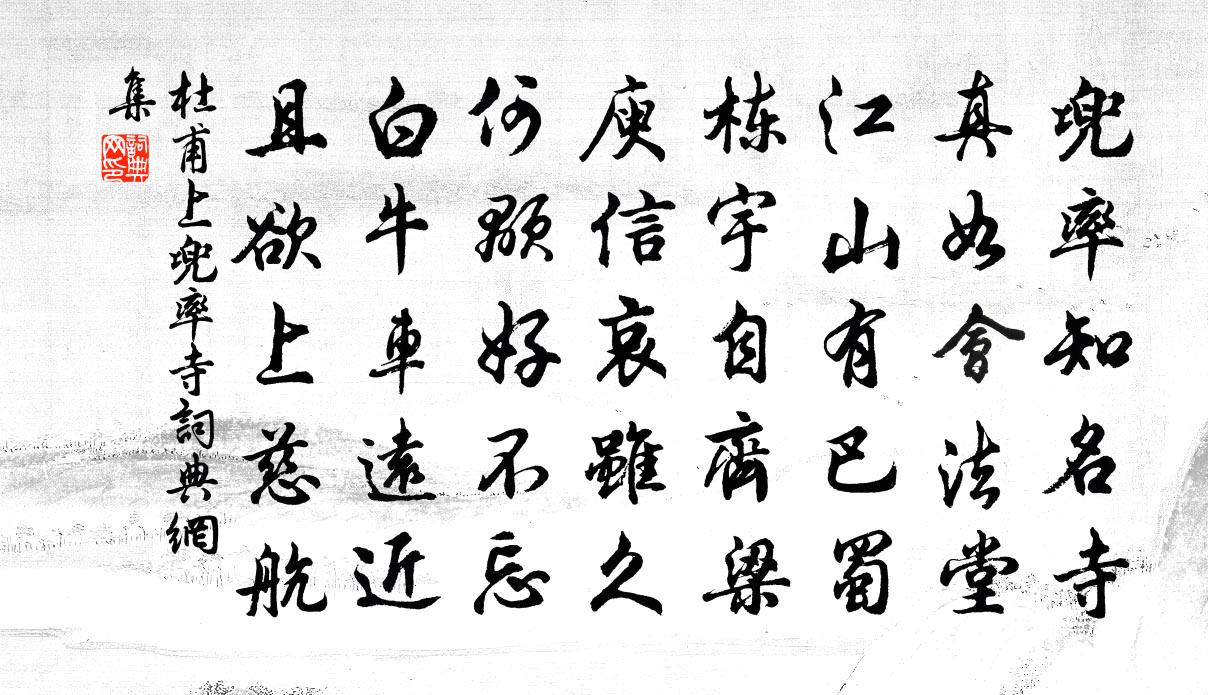 兜率知名寺
真如會法堂
江山有巴蜀
栋宇自齊梁
庾信哀雖久
何顒好不忘
白牛車遠近
且欲上慈航
杜甫上兜率寺詞典網
集
詞典
网印